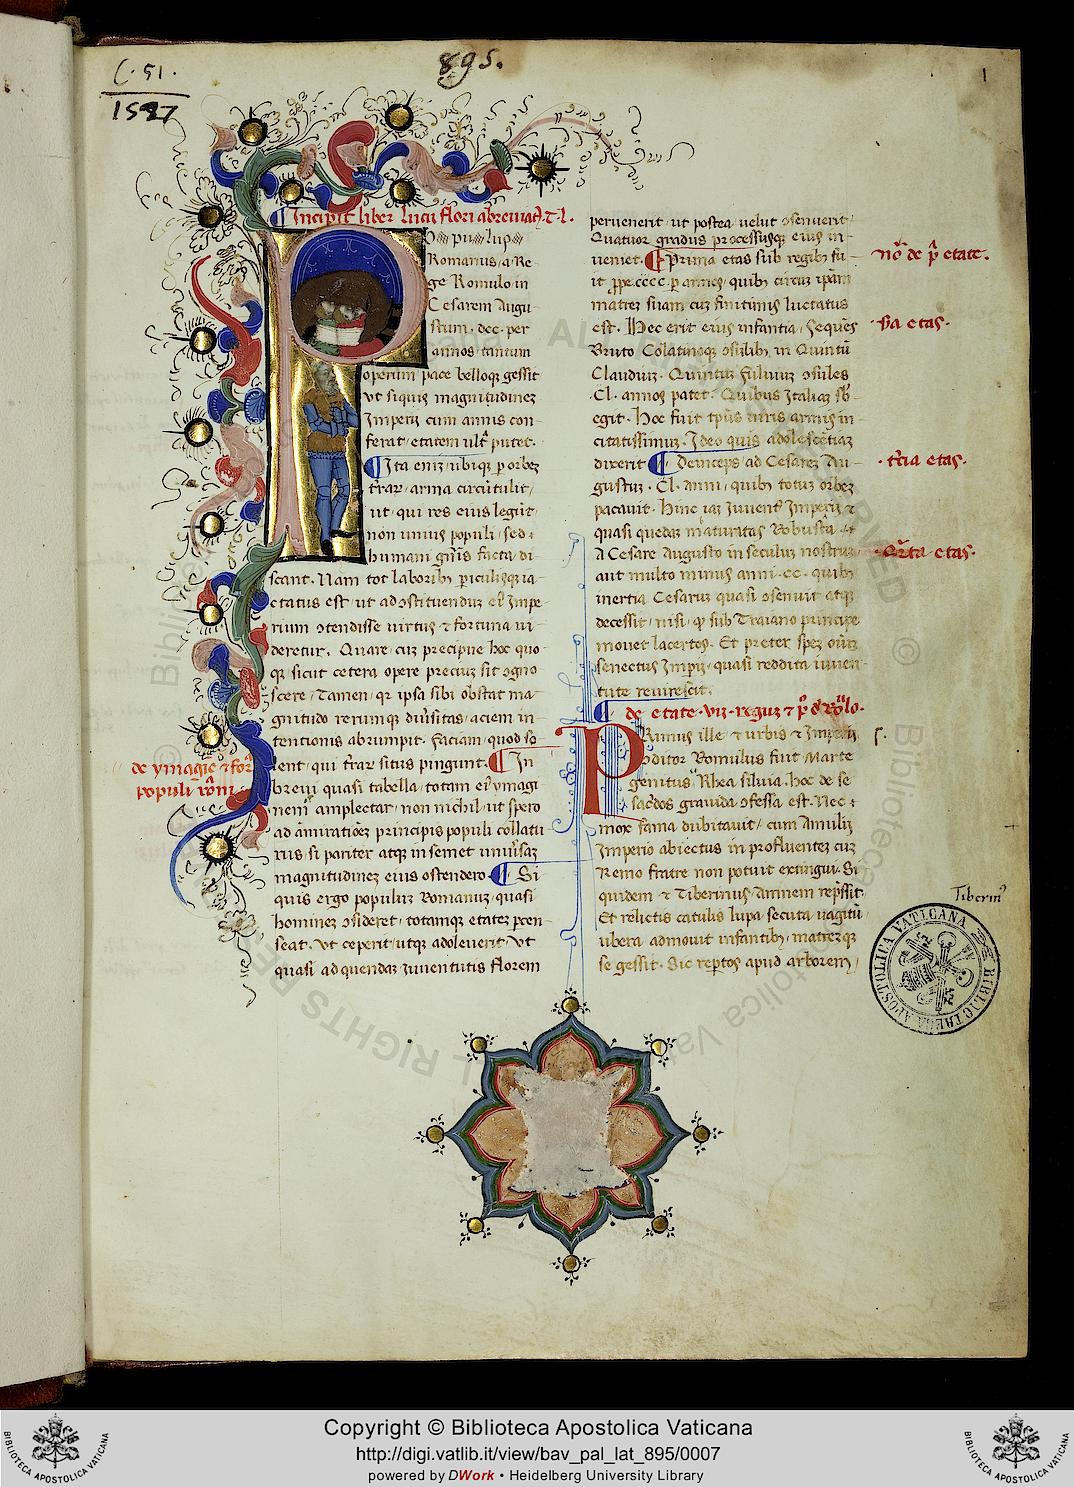 C. 51.
1527
895.
1
Incipit liber Lucii flori abreuiat͛. T. L.
Romanus, a Re-
ge Romulo in
Cesarem Augu-
stum. dcc. per
annos. tantum
operum pace belloqꝫ gessit
ut siquis magnitudineꝫ
Imperii cum annis con-
ferat, etatem ultͣ putet.
Ita eniꝫ ubiqꝫ ꝑ orbeꝫ
t͛raꝝ arma circũtulit,
ut, qui res eius legũt
non unius populi, sed
humani gn̄is facta di-
scant. Nam tot laboribꝫ ꝑiculisqꝫ ia-
ctatus est, ut ad ↄstituenduꝫ eiꝰ Impe-
rium ↄtendisse uirtus ⁊ fortuna ui-
deretur. Quare cuꝫ precipue hoc quo-
qꝫ, sicut cetera opere preciuꝫ sit ↄgno-
scere, Tamen, qꝛ ipsa sibi obstat ma-
gnitudo rerumqꝫ diu͛sitas, aciem in-
tentionis abrumpit. Faciam, quod so-
lent, qui t͛raꝝ situs pingunt. In
breui quasi tabella, totam eiꝰ ymagi
nem amplectar, non nichil, ut spero
ad am̄irationeꝫ principis populi collatu-
rus, si pariter atqꝫ in semet uniu͛saꝫ
magnitudineꝫ eius ostendero. Si
quis ergo populuꝫ Romanuꝫ, quasi
homineꝫ ↄsideret, totamqꝫ etateꝫ ꝑcen-
seat. Vt ceperit, utqꝫ adoleuerit, Vt
quasi ad quendaꝫ iuuentutis florem
de ymagīe ⁊ for͛
populi rōm̄.
peruenerit, ut postea, uelut ↄsenuerit,
Quatuor gradus ꝓcessusqꝫ eius in-
ueniet. Prima etas sub regibꝫ fu-
it ꝓpe. cccc. ꝑ annos, quibꝫ circuꝫ ip̄am
matreꝫ suam cuꝫ finitimis luctatus
est. Hec erit eius infantia, Sequēs
Bruto Colatinoqꝫ ↄsulibꝫ, in Quintū
Claudiuꝫ. Quintuꝫ fuluiuꝫ ↄsules
Cl. annos patet. Quibus Italiaꝫ sb̄-
egit. Hoc fuit tp̄us uiris armis in-
citatissimuꝫ. Ideo quis adolescētiaꝫ
dixerit. Deinceps ad Cesareꝫ Au-
gustuꝫ. Cl. anni, quibꝫ totuꝫ orbeꝫ
pacauit. Hinc iaꝫ iuuentꝰ Imperii ⁊
quasi quedaꝫ maturitas Robusta.
A Cesare Augusto in seculuꝫ nostruꝫ
aut multo minus anni. cc. quibꝫ
inertia Cesaruꝫ quasi ↄsenuit atqꝫ
decessit, nisi, ꝙ sub Traiano principe
mouet lacertos. Et preter speꝫ oīuꝫ
senectus Imperii, quasi reddita iuuen-
tute reuirescit.
Primus ille ⁊ urbis ⁊ Imperii
ↄditor Romulus fuit Marte
genitus, Rhea siluia. Hoc de se
sac͛dos grauida ↄfessa est. Nec
mox fama dubitauit, cum Amulii
Imperio abiectus in profluenteꝫ cuꝫ
Remo fratre non potuit extingui. Si
quidem ⁊ Tiberinus Amnem rep̄ssit
Et relictis catulis lupa secuta uagitū
ubera admouit infantibꝫ, matreꝫqꝫ
se gessit. Sic rep̄tos apud arborem
nōͣ de pͣ etate.
·ii·a etas.
·t͛cia etas.
·Qͣrta etas.
Tiberinꝰ
BIBLIOTHECA APOSTOLICA VATICANA
Copyright © Biblioteca Apostolica Vaticana
http://digi.vatlib.it/view/bav_pal_lat_895/0007
powered by DWork • Heidelberg University Library
BIBLIOTECA APOSTOLICA VATICANA
BIBLIOTECA APOSTOLICA VATICANA